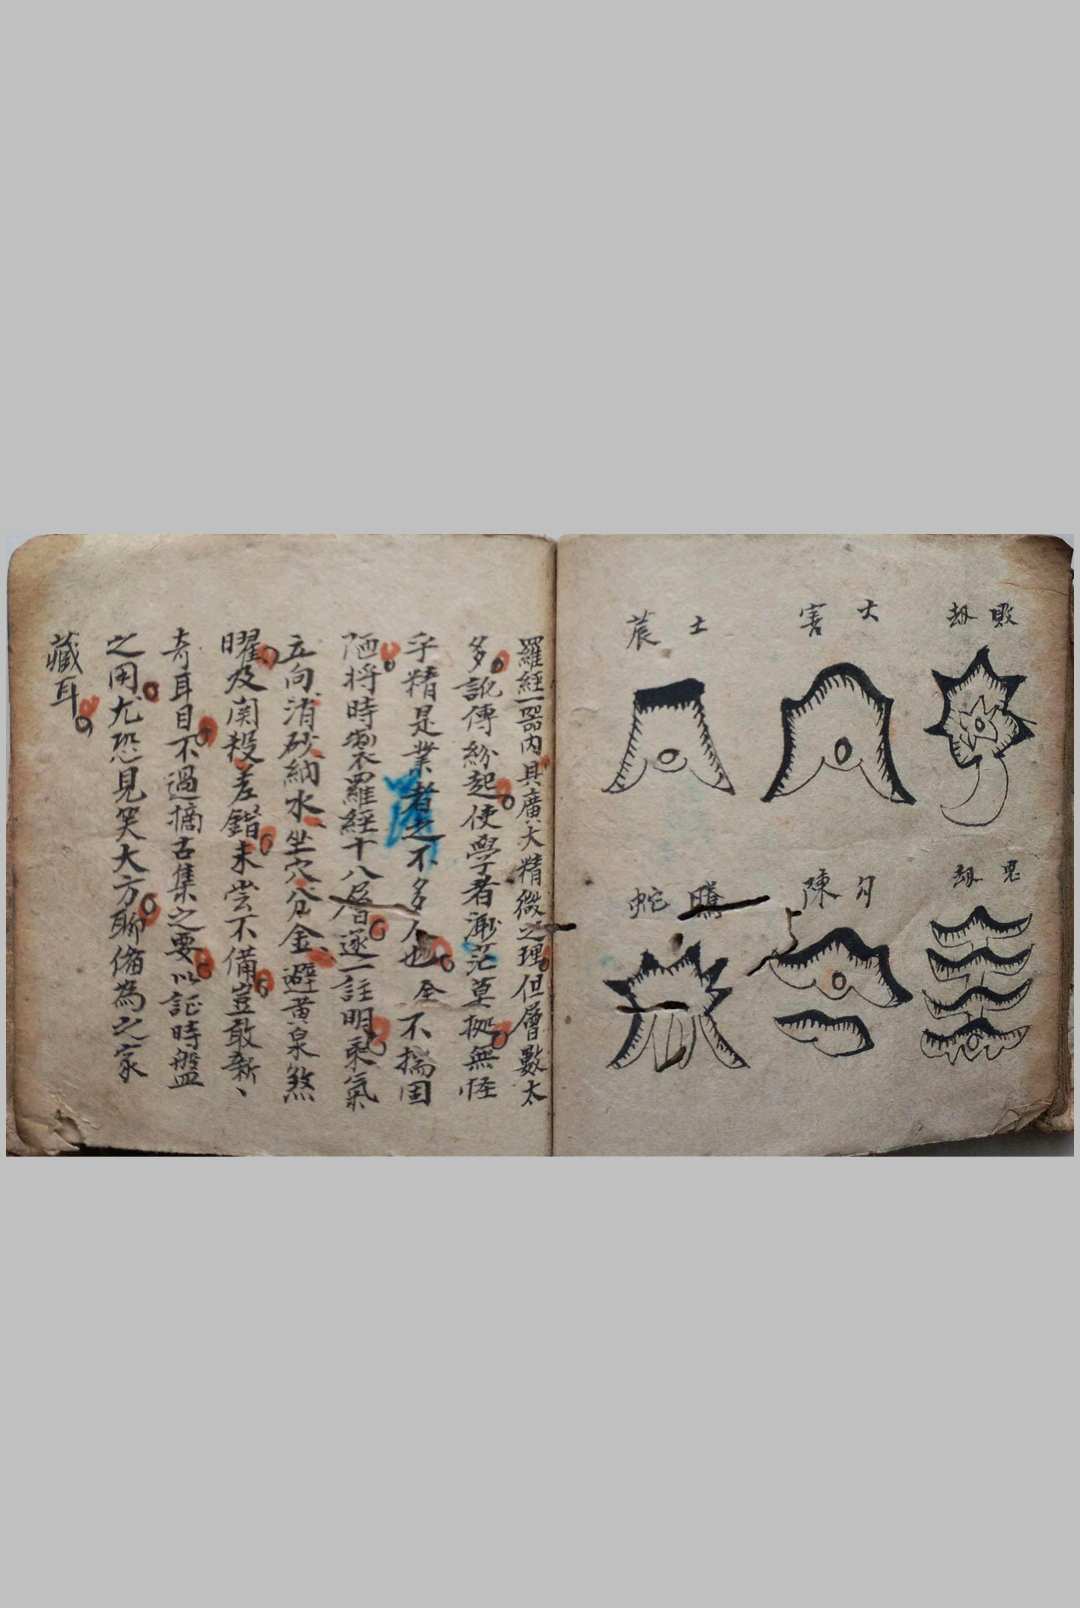 敗劫
大害
土蓑
惡劫
勾陳
騰蛇
羅經一器內具廣大精微之理但層數太
多訛傳紛起使學者渺茫莫拠無怪
乎精是業者之不多人也余不揣固
陋將時製羅經十八層逐一註明乘氣
立向消砂納水坐穴分金避黃泉煞
曜及関殺差錯未尝不備豈敢新、
奇耳目不過摘古集之要以証時盤
之用尤恐見笑大方聊備為之家
藏耳